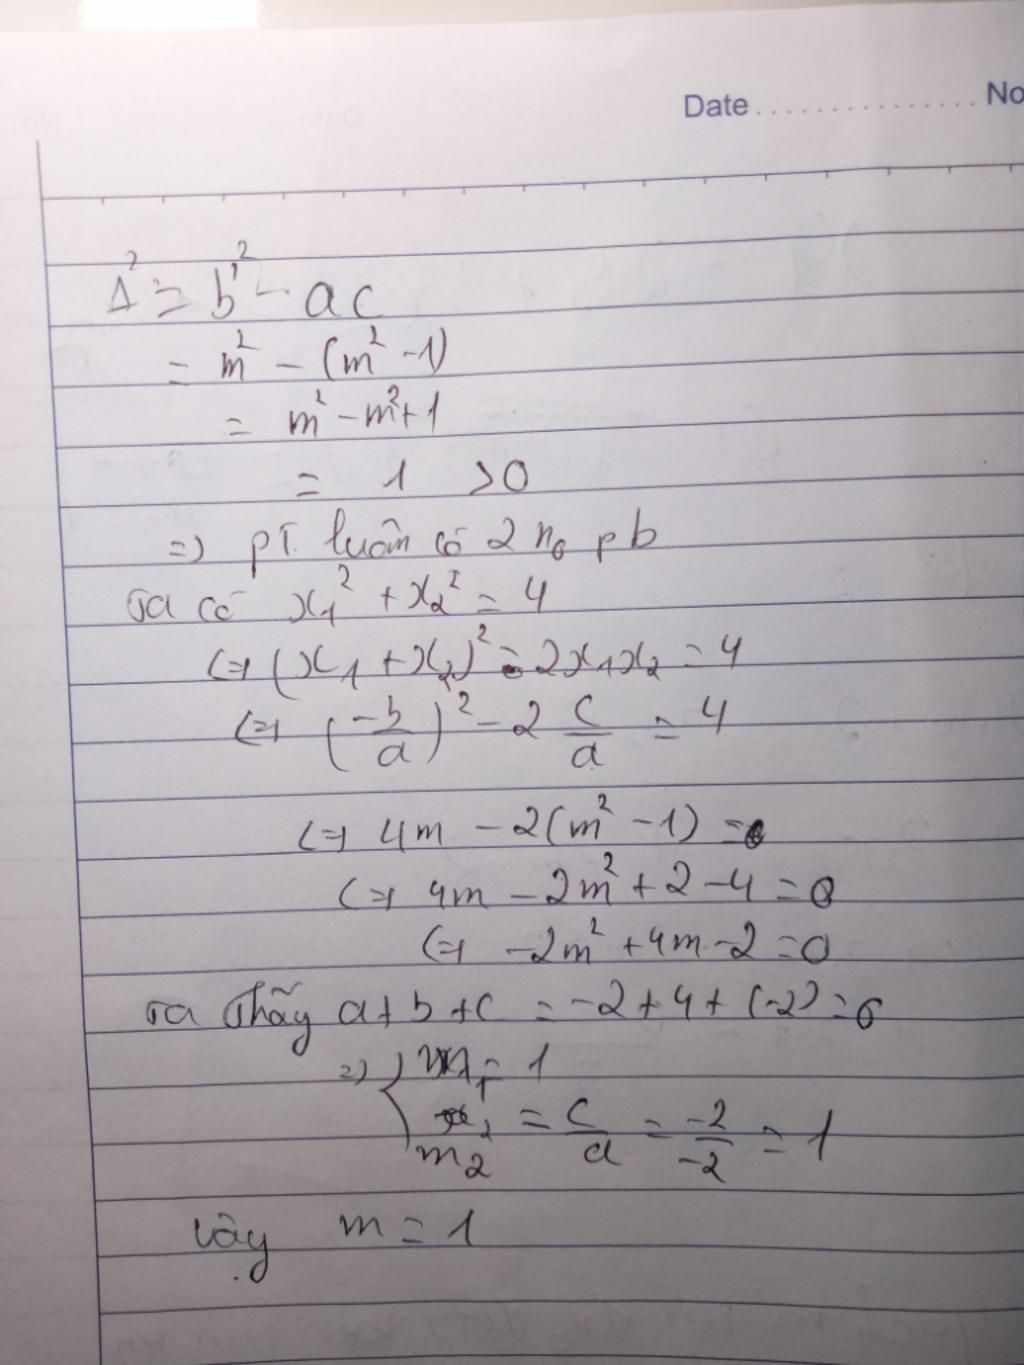 Date ................ No
Δ' = b'² - ac
= m² - (m² - 1)
= m² - m² + 1
= 1 > 0
=> pT. luôn có 2 n₀ pb
Ta có x₁² + x₂² = 4
<=> (x₁ + x₂)² - 2x₁x₂ = 4
<=> (-b/a)² - 2 c/a = 4
<=> 4m - 2(m² - 1) =
<=> 4m - 2m² + 2 - 4 = 0
<=> -2m² + 4m - 2 = 0
Ta thấy a + b + c = -2 + 4 + (-2) = 0
=> { m₁ = 1
m₂ = c/a = -2/-2 = 1
Vậy m = 1